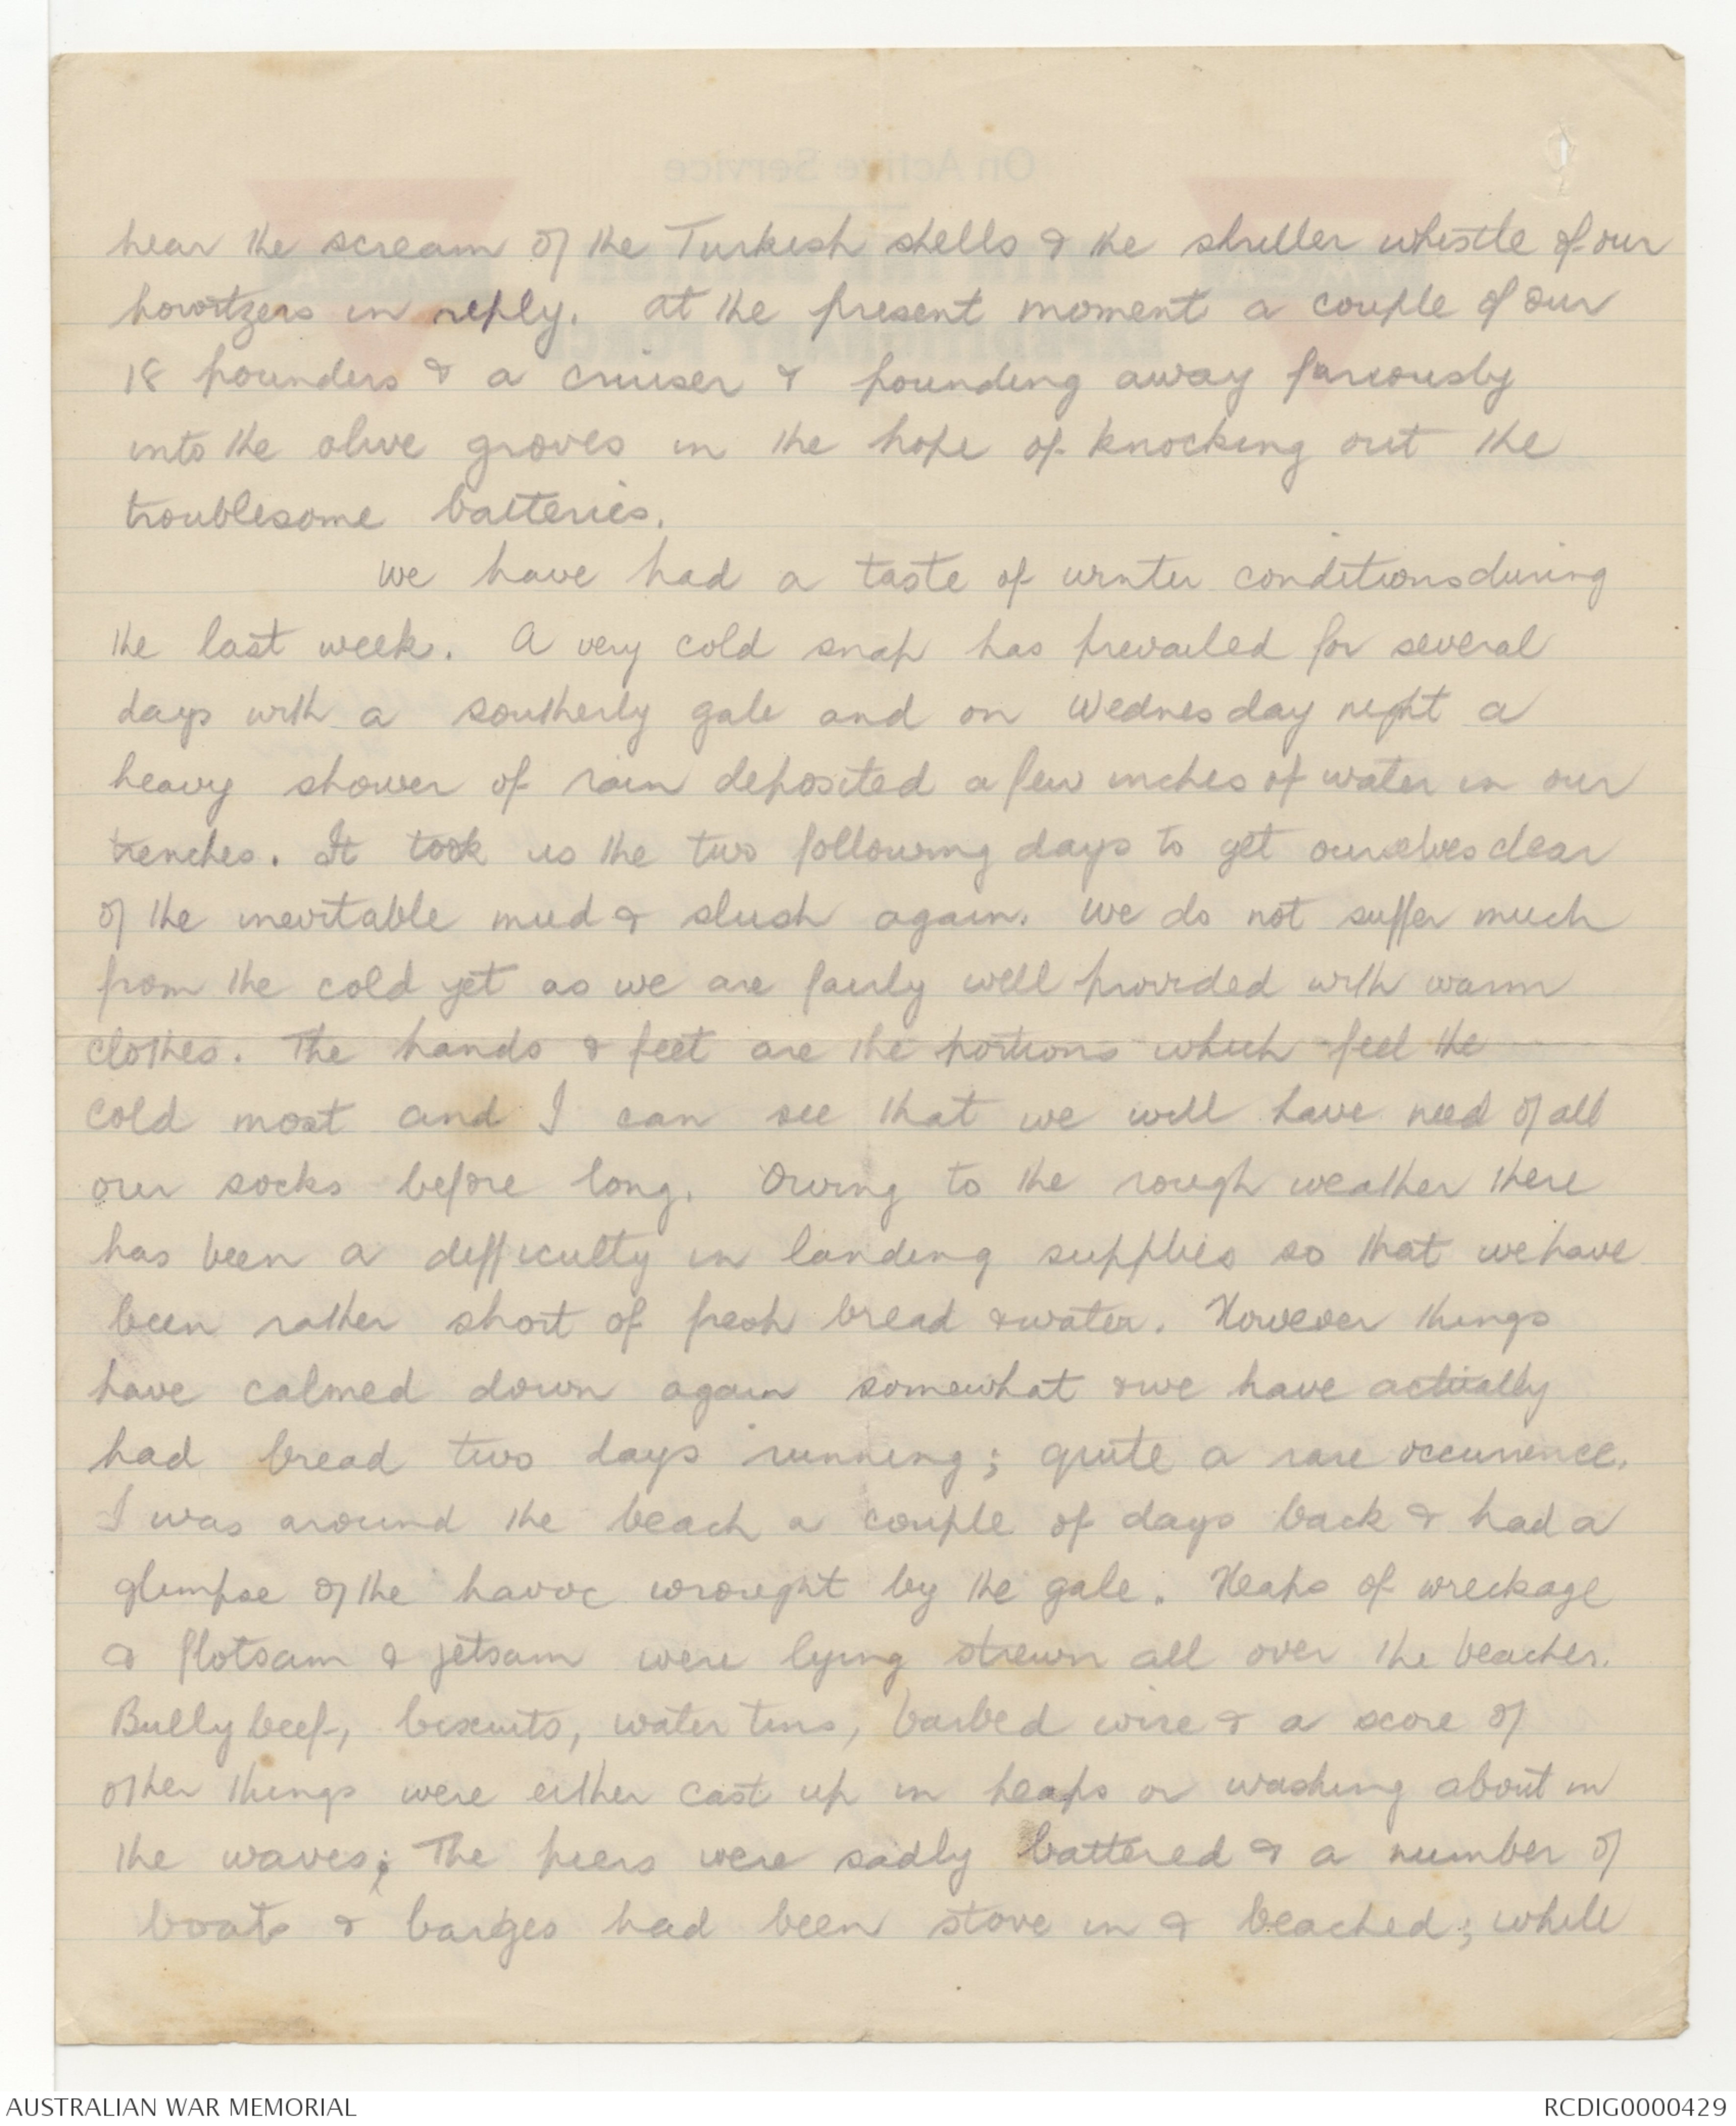 hear the scream of the Turkish shells & the shriller whistle of our
howitzers in reply. At the present moment a couple of our
18 pounders & a cruiser & pounding away furiously
into the olive groves in the hope of knocking out the
troublesome batteries.
We have had a taste of winter conditions during
the last week. A very cold snap has prevailed for several
days with a southerly gale and on Wednesday night a
heavy shower of rain deposited a few inches of water in our
trenches. It took us the two following days to get ourselves clear
of the inevitable mud & slush again. We do not suffer much
from the cold yet as we are fairly well provided with warm
clothes. The hands & feet are the portions which feel the
cold most and I can see that we will have need of all
our socks before long. Owing to the rough weather there
has been a difficulty in landing supplies so that we have
been rather short of fresh bread & water. However things
have calmed down again somewhat & we have actually
had bread two days running; quite a rare occurrence.
I was around the beach a couple of days back & had a
glimpse of the havoc wrought by the gale. Heaps of wreckage
& flotsam & jetsam were lying strewn all over the beaches.
Bully beef, biscuits, water tins, barbed wire & a score of
other things were either cast up in heaps or washing about in
the waves; The piers were sadly battered & a number of
boats & barges had been stove in & beached; while
AUSTRALIAN WAR MEMORIAL
RCDIG0000429